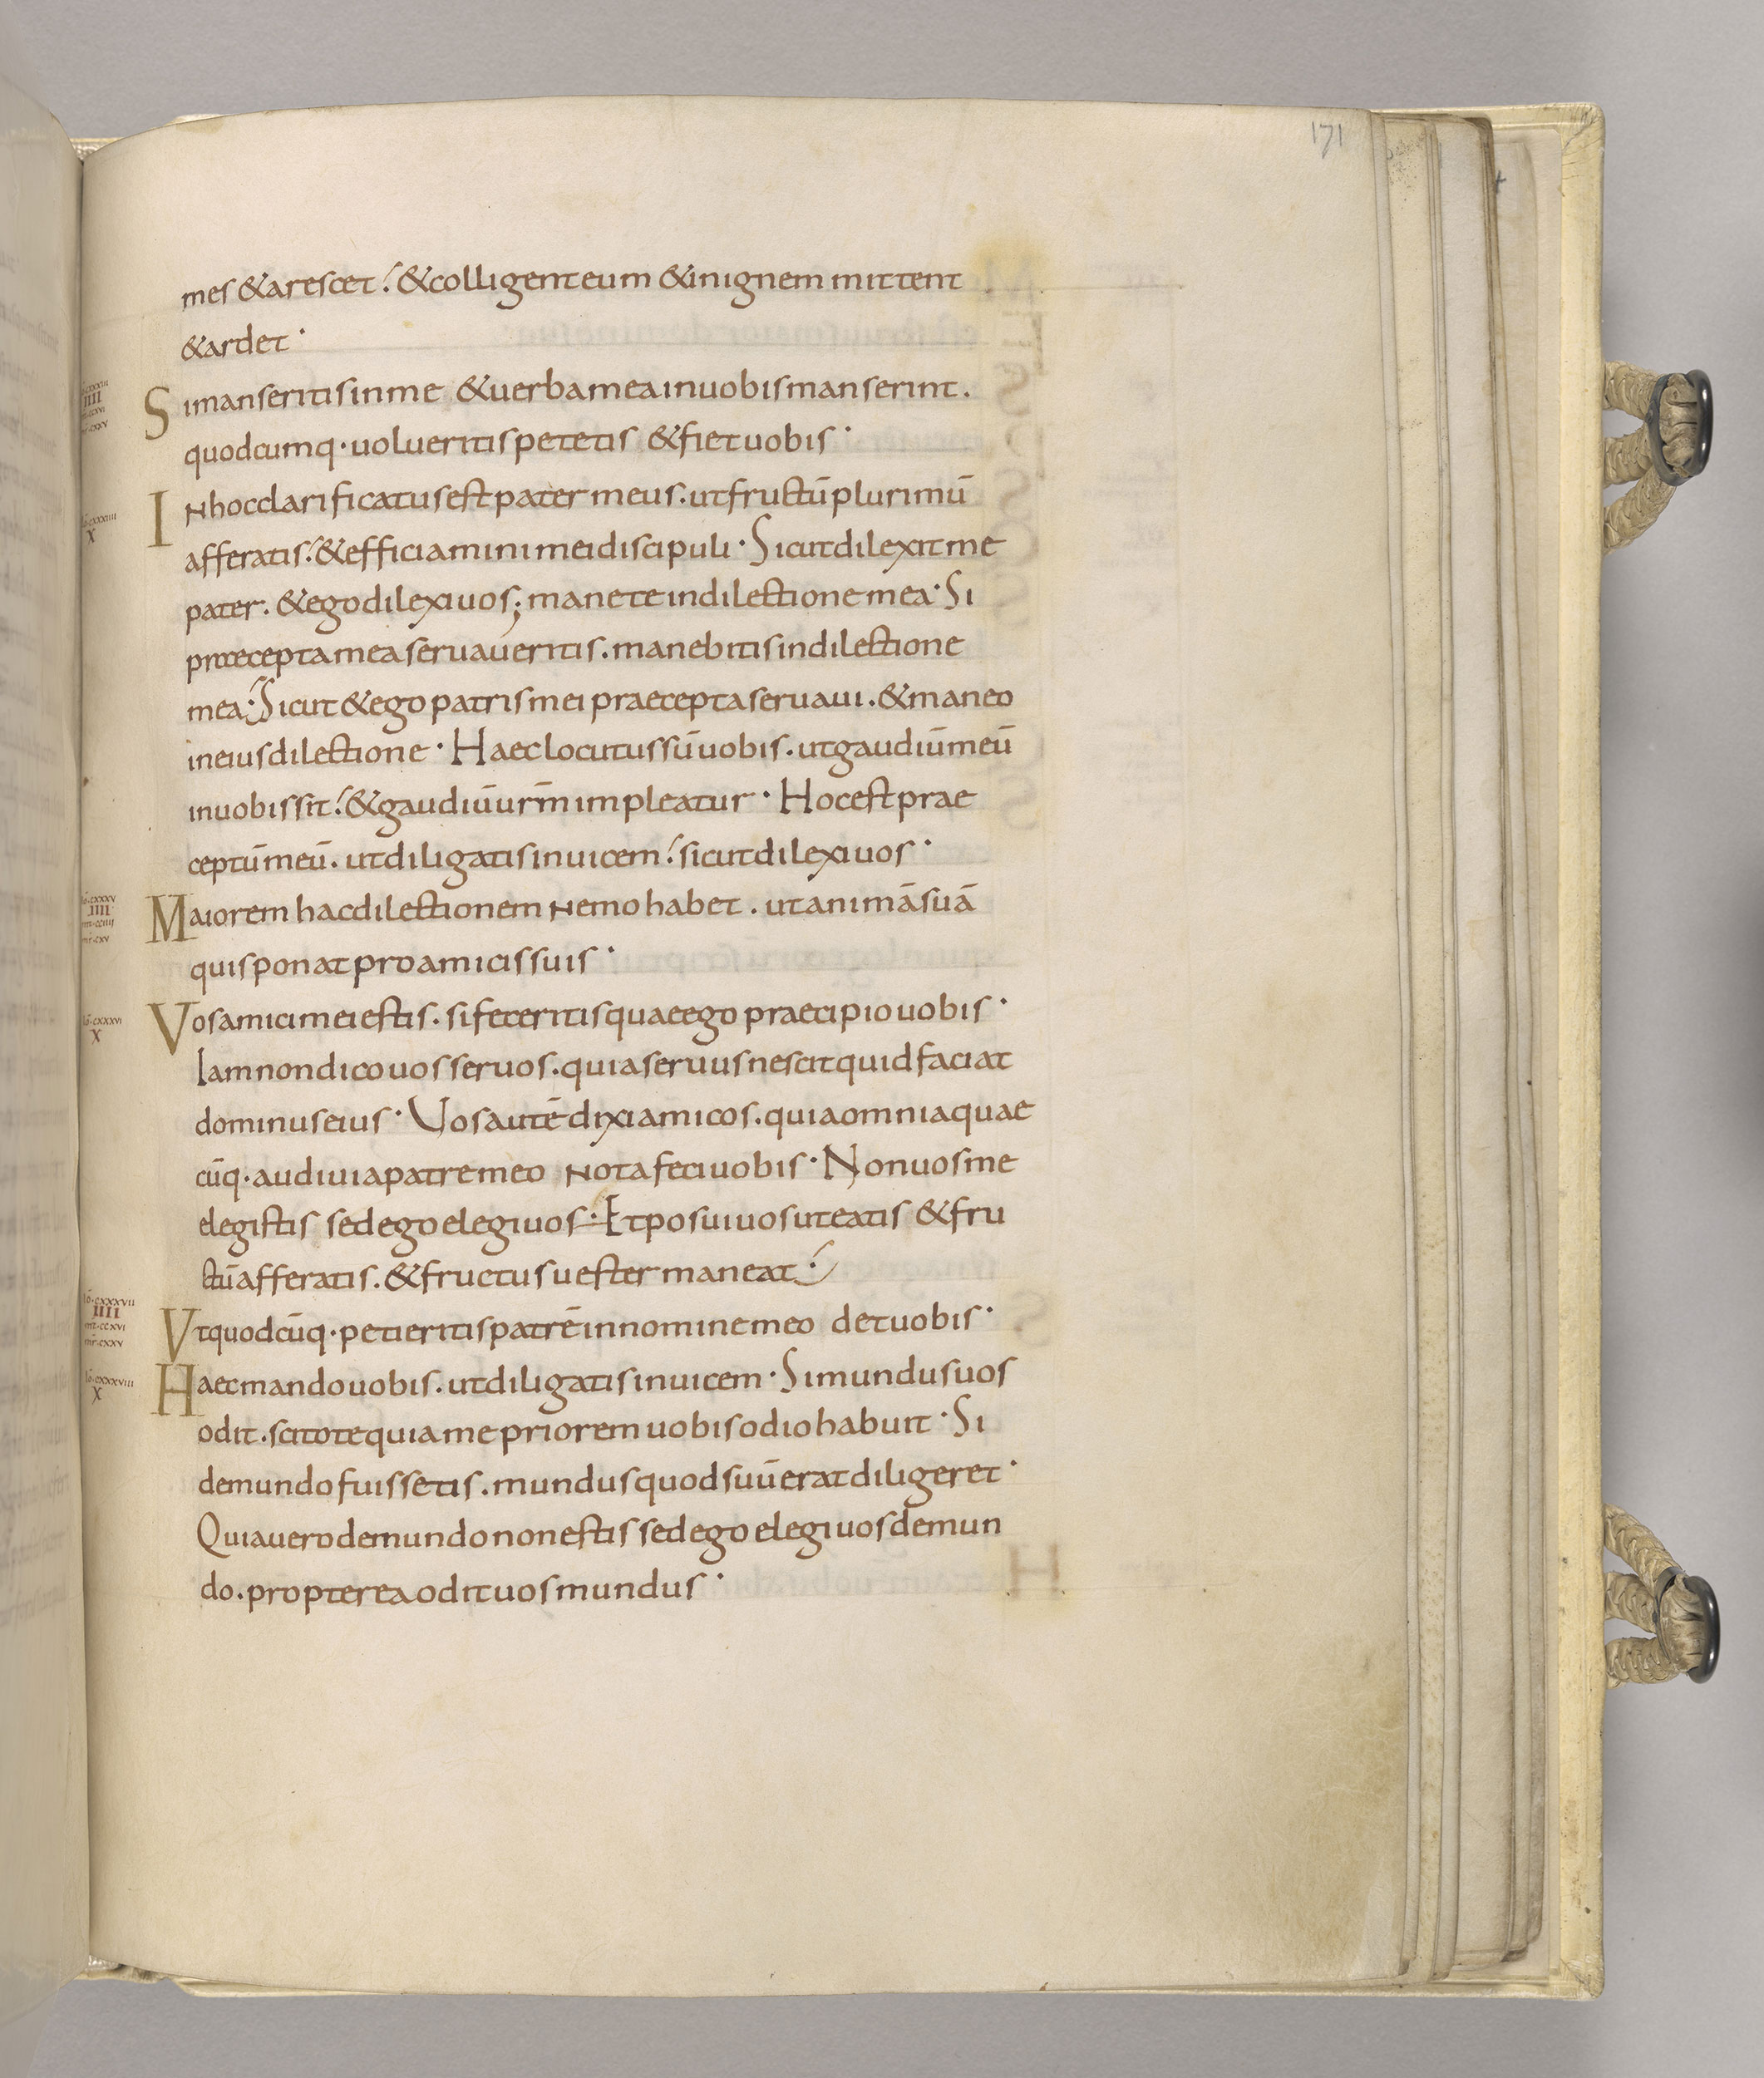 171
mes &arescet! &colligenteum &inignem mittent
&ardet·
Simanseritisinme &uerbameainuobismanserint.
quodcumq·uolueritispetetis &fietuobis·
Inhocclarificatusestpatermeus.utfructūplurimū
afferatis!&efficiaminimeidiscipuli·Sicutdilexitme
pater.&egodilexiuos;maneteindilectionemea·Si
praeceptameaseruaueritis.manebitisindilectione
mea·Sicut&egopatrismeipraeceptaseruaui.&maneo
ineiusdilectione·Haeclocutussūuobis.utgaudiūmeū
inuobissit!&gaudiūur̄mimpleatur·Hocestprae
ceptūmeū.utdiligatisinuicem!sicutdilexiuos·
Maioremhacdilectionemnemohabet.utanimāsuā
quisponatproamicissuis·
Vosamicimeiestis.sifeceritisquaeegopraecipiouobis·
Iamnondicouosseruos.quiaseruusnescitquidfaciat
dominuseius·Uosautēdixiamicos.quiaomniaquae
cūq·audiuiapatremeo notafeciuobis·Nonuosme
elegistis sedegoelegiuos·Etposuiuosuteatis &fru
ctūafferatis.&fructusuestermaneat!
Vtquodcūq·petieritispatrēinnominemeo detuobis·
Haecmandouobis.utdiligatisinuicem·Simundusuos
odit.scitotequiameprioremuobisodiohabuit·Si
demundofuissetis.mundusquodsuūeratdiligeret·
Quiauerodemundononestissedegoelegiuosdemun
do.proptereaodituosmundus·
IIII
X
IIII
X
IIII
X